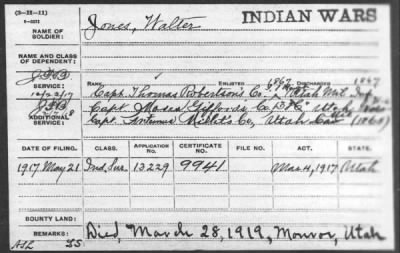 (3-22-11)
INDIAN WARS
NAME OF SOLDIER: Jones, Walter
NAME AND CLASS OF DEPENDENT:
SERVICE: RANK. ENLISTED 1867 DISCHARGED 1867
Capt. Thomas Robertson's Co. Utah Mil. Inf.
Capt. Moses Gifford's Co. Utah
ADDITIONAL SERVICE: Capt. Co., Utah Cav. (1868)
DATE OF FILING. CLASS. APPLICATION NO. CERTIFICATE NO. FILE NO. ACT. STATE.
1917 May 21 Ind. Sur. 13229 9941 Mar. 4, 1917 Utah
BOUNTY LAND:
REMARKS: Died, March 28, 1919, Monroe, Utah